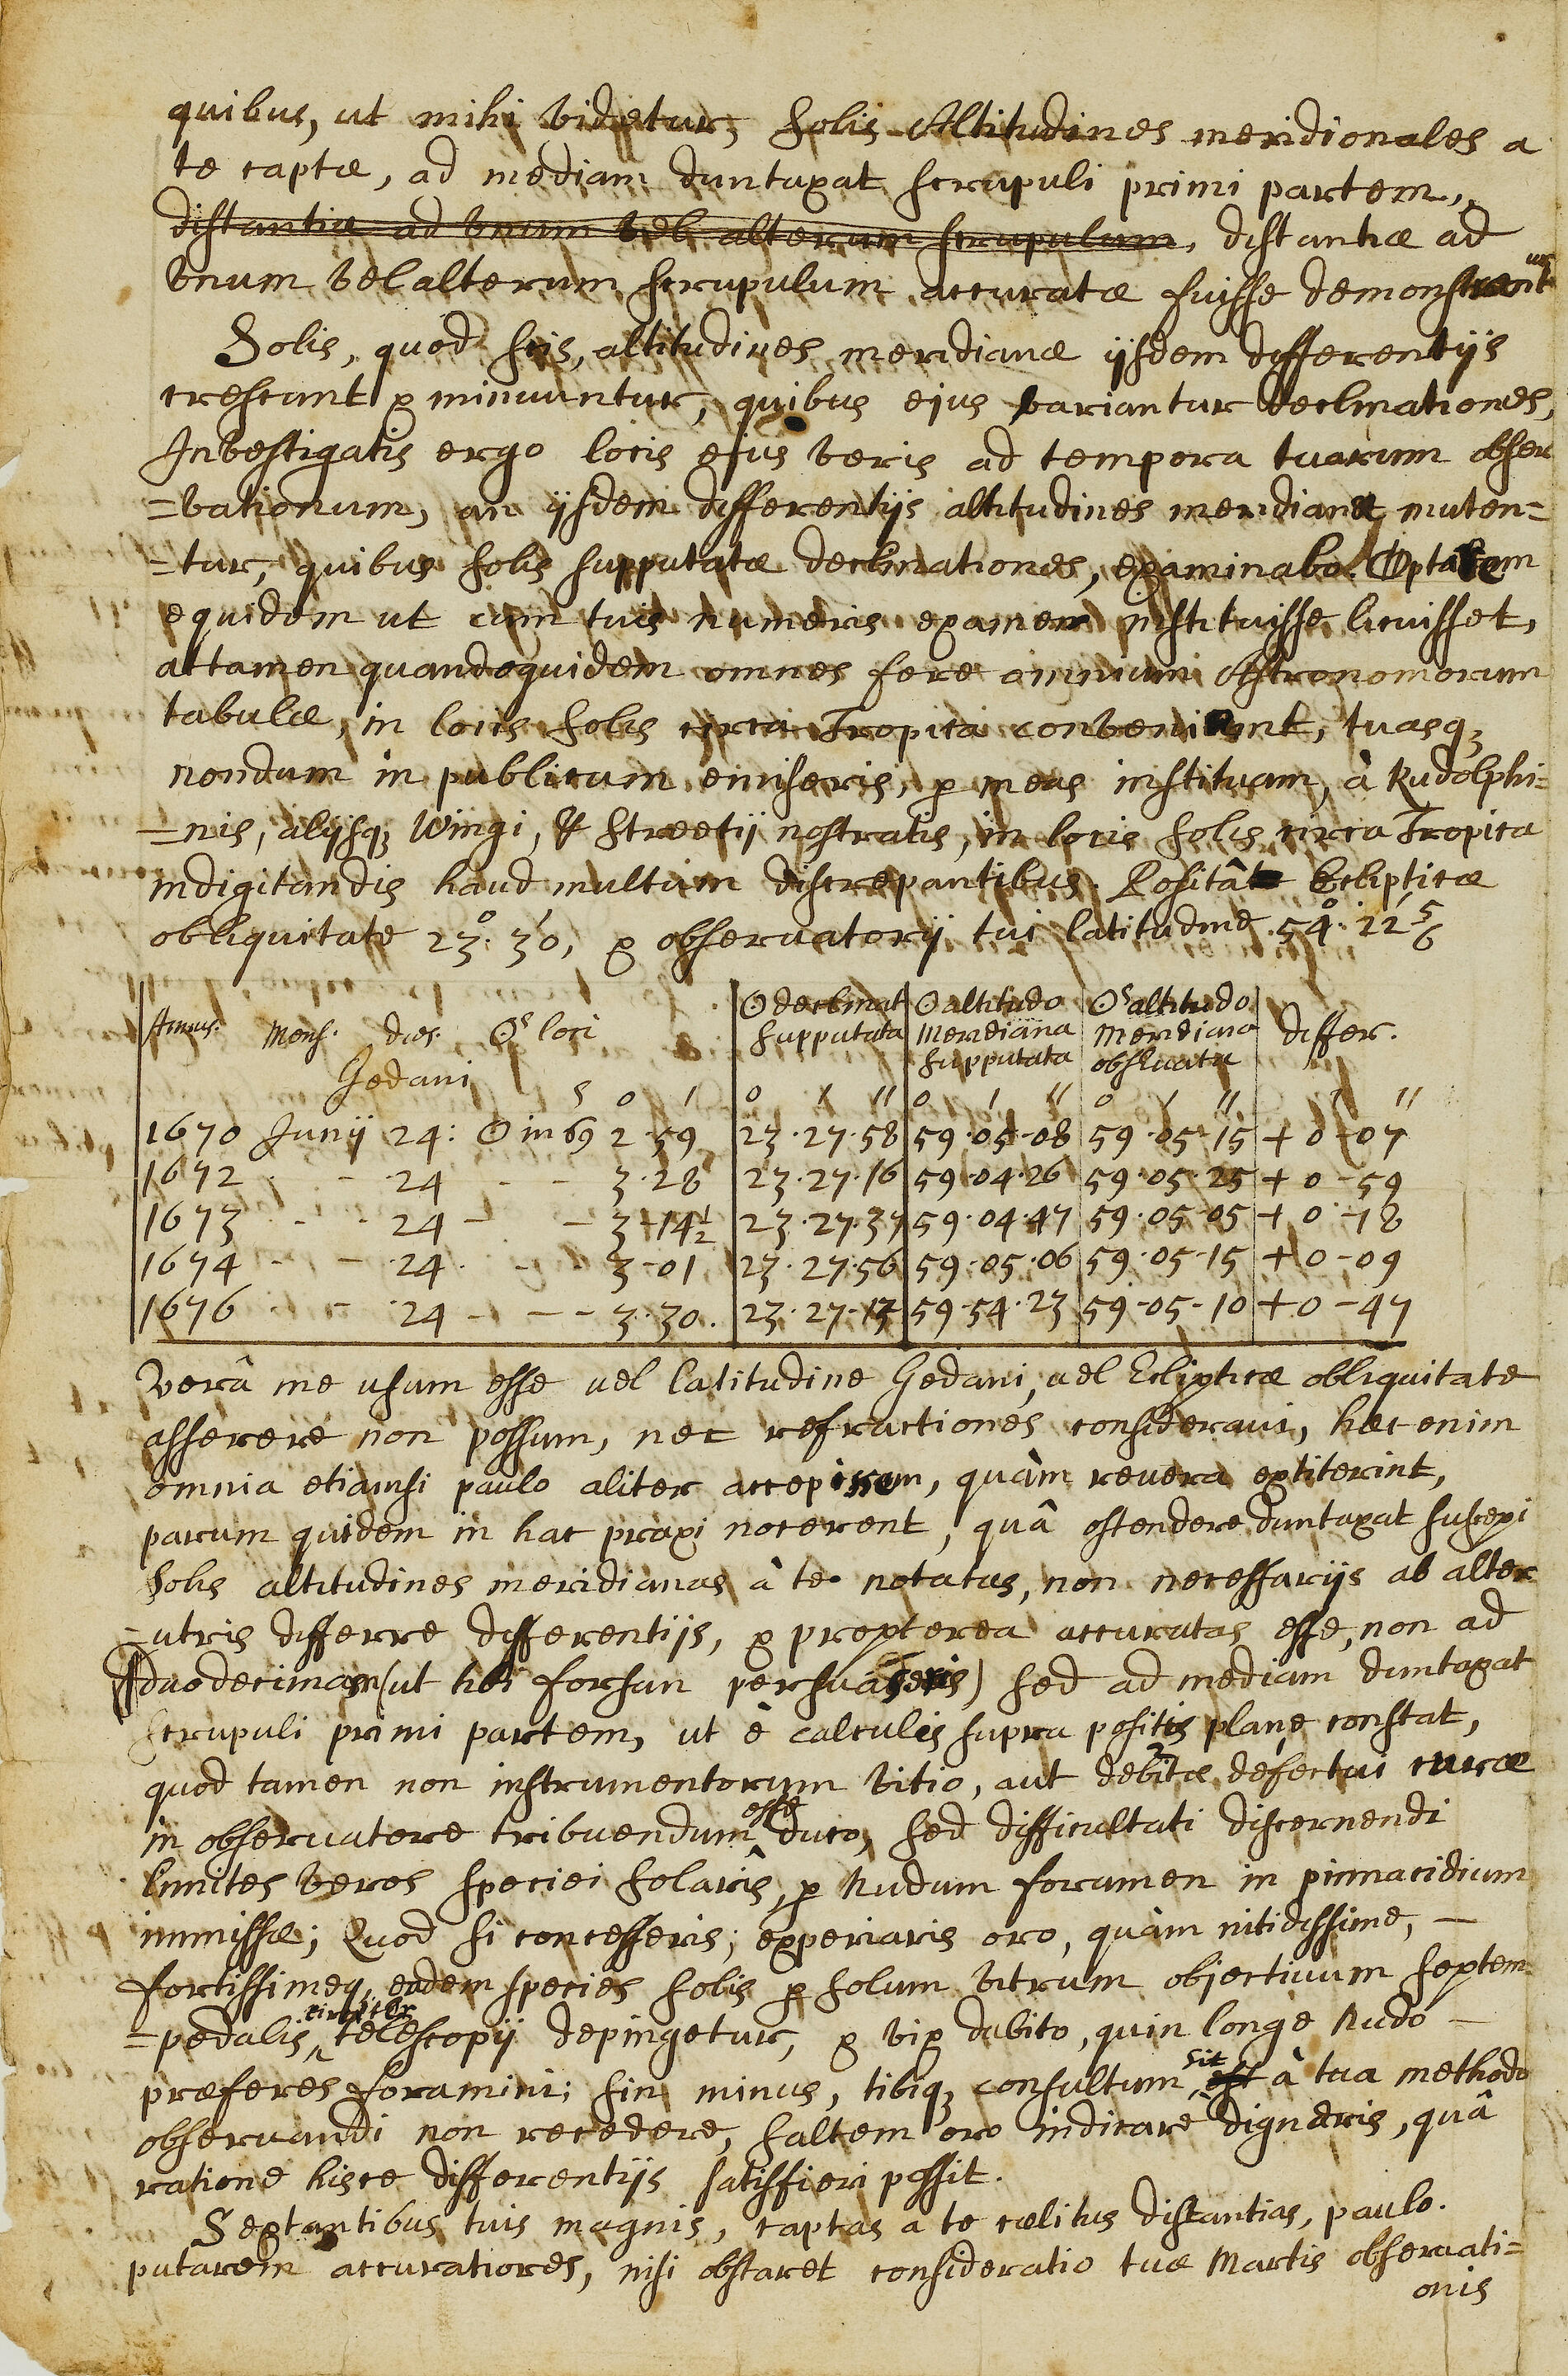 quibus, ut mihi videtur, Solis Altitudines meridionales a
te captæ, ad mediam duntaxat scrupuli primi partem,
distantiæ ad vnum vel alterum scrupulum, distantiæ ad
vnum vel alterum scrupulum accuratæ fuisse
Solis, quod scis, altitudines meridianæ ijsdem differentijs
crescunt & minuuntur, quibus ejus variantur declinationes,
Investigatis ergo locis ejus veris ad tempora tuarum obser
=vationum, an ijsdem differentijs altitudines meridianæ muten=
=tur, quibus solis supputatæ declinationes, examinabo. Optarem
equidem ut cum tuis numeris examen instituisse licuisset,
attamen quandoquidem omnes fere omnium Astronomorum
tabulæ, in locis solis circa Tropica conveniunt, tuasq;
nondum in publicum emiseris, p meas instituam, à Rudolphi=
=nis, alijsq; Wingi, & Streetij nostratis, in locis solis circa Tropica
indigitandis haud multum discrepantibus. Positâ Eclipticæ
obliquitate 23°. 30', & observatorij tui latitudine. 54°. 22' 5/6
Annus. Mens. dies. ☉s loci
Gedani
☉ declinat supputata
☉ altitudo Meridiana supputata
☉s altitudo Meridiana obseruata
differ.
s o ' o ' '' o ' '' o ' '' ' ''
1670 Junij 24: ☉ in ♋ 2.59 23.27.58 59.05.08 59.05.15 + 0-07
1672 - - 24 - - 3.28 23.27.16 59.04.26 59.05.25 + 0-59
1673 - - 24 - - 3-14½ 23.27.37 59.04.47 59.05.05 + 0-18
1674 - - 24. - - 3-01 23.27.56 59.05.06 59.05.15 + 0-09
1676 - - 24 - - - 3.30. 23.27.13 59.54.23 59-05-10 + 0-47
Verâ me usum esse uel latitudine Gedani, uel Eclipticæ obliquitate
asserere non possum, nec refractiones consideraui, hæc enim
omnia etiamsi paulo aliter accepissem, quàm revera extiterint,
parum quidem in hac praxi nocerent, quâ ostendere duntaxat suscepi
solis altitudines meridianas à te notatas, non necessarijs ab alter
=utris differre differentijs, & propterea accuratas esse, non ad
duodecimam (ut tibi forsan persuaseris) sed ad mediam duntaxat
scrupuli primi partem, ut è calculis supra positis plane constat,
quod tamen non instrumentorum vitio, aut debitæ defectui curæ
in observatore tribuendum esse duco, sed difficultati discernendi
limites veros speciei solaris, p nudum foramen in pinnacidium
immissæ; Quod si concesseris; experiaris oro, quàm nitidissime, -
fortissimeq; eadem species solis p solum vitrum objectiuum septem
=pedalis circiter telescopij depingetur, & vix dubito, quin longe nudo -
præferes foramini; sin minus, tibiq; consultum sit est à tua methodo
observandi non recedere, saltem oro indicare digneris, quâ
ratione hisce differentijs satisfieri possit.
Sextantibus tuis magnis, captas a te cælitus distantias, paulo.
putarem accuratiores, nisi obstaret consideratio tuæ Martis observati=
onis